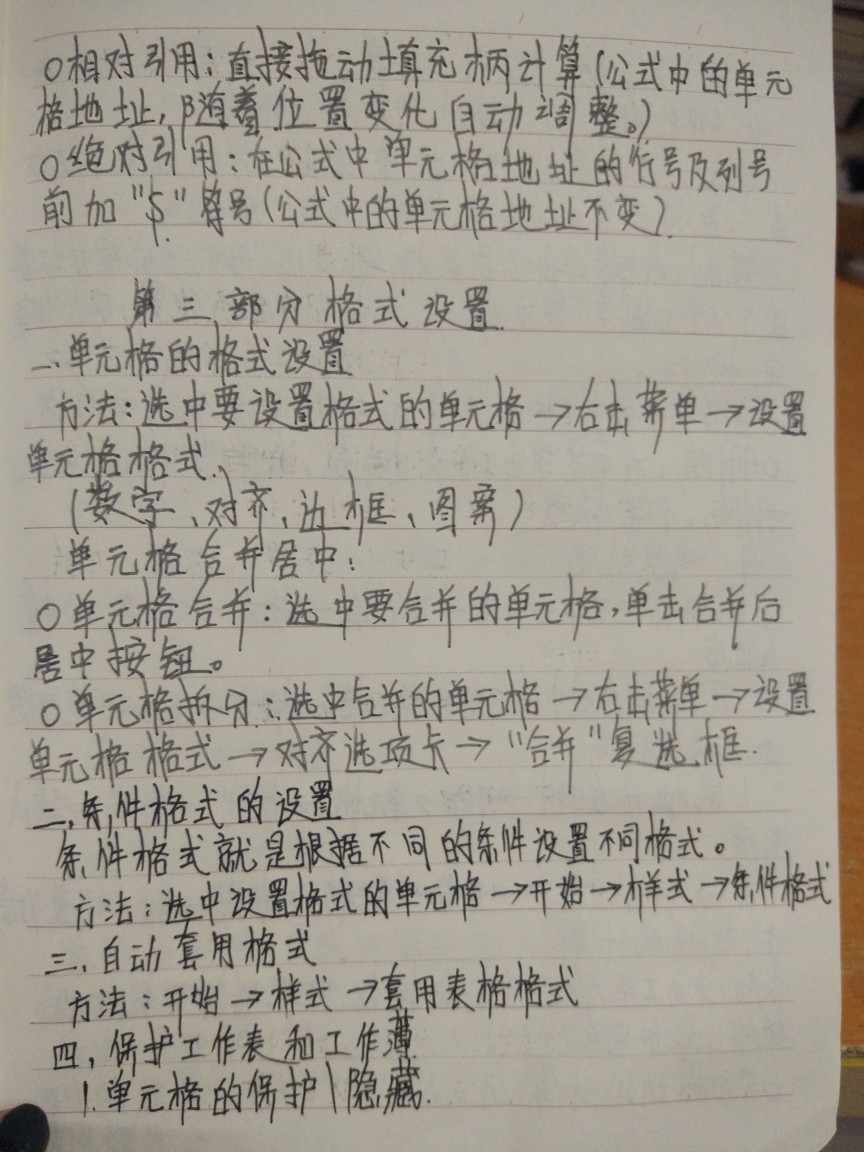 ○相对引用:直接拖动填充柄计算(公式中的单元
格地址,随着位置变化自动调整。)
○绝对引用:在公式中单元格地址的行号及列号
前加"$"符号(公式中的单元格地址不变).
第三部分格式设置.
一、单元格的格式设置
方法:选中要设置格式的单元格→右击菜单→设置
单元格格式.
(数字、对齐、边框、图案)
单元格合并居中:
○单元格合并:选中要合并的单元格,单击合并后
居中按钮。
○单元格拆分:选中合并的单元格→右击菜单→设置
单元格格式→对齐选项卡→"合并"复选框.
二,条件格式的设置
条件格式就是根据不同的条件设置不同格式。
方法:选中设置格式的单元格→开始→样式→条件格式
三,自动套用格式
方法:开始→样式→套用表格格式
四,保护工作表和工作薄
1.单元格的保护\隐藏.